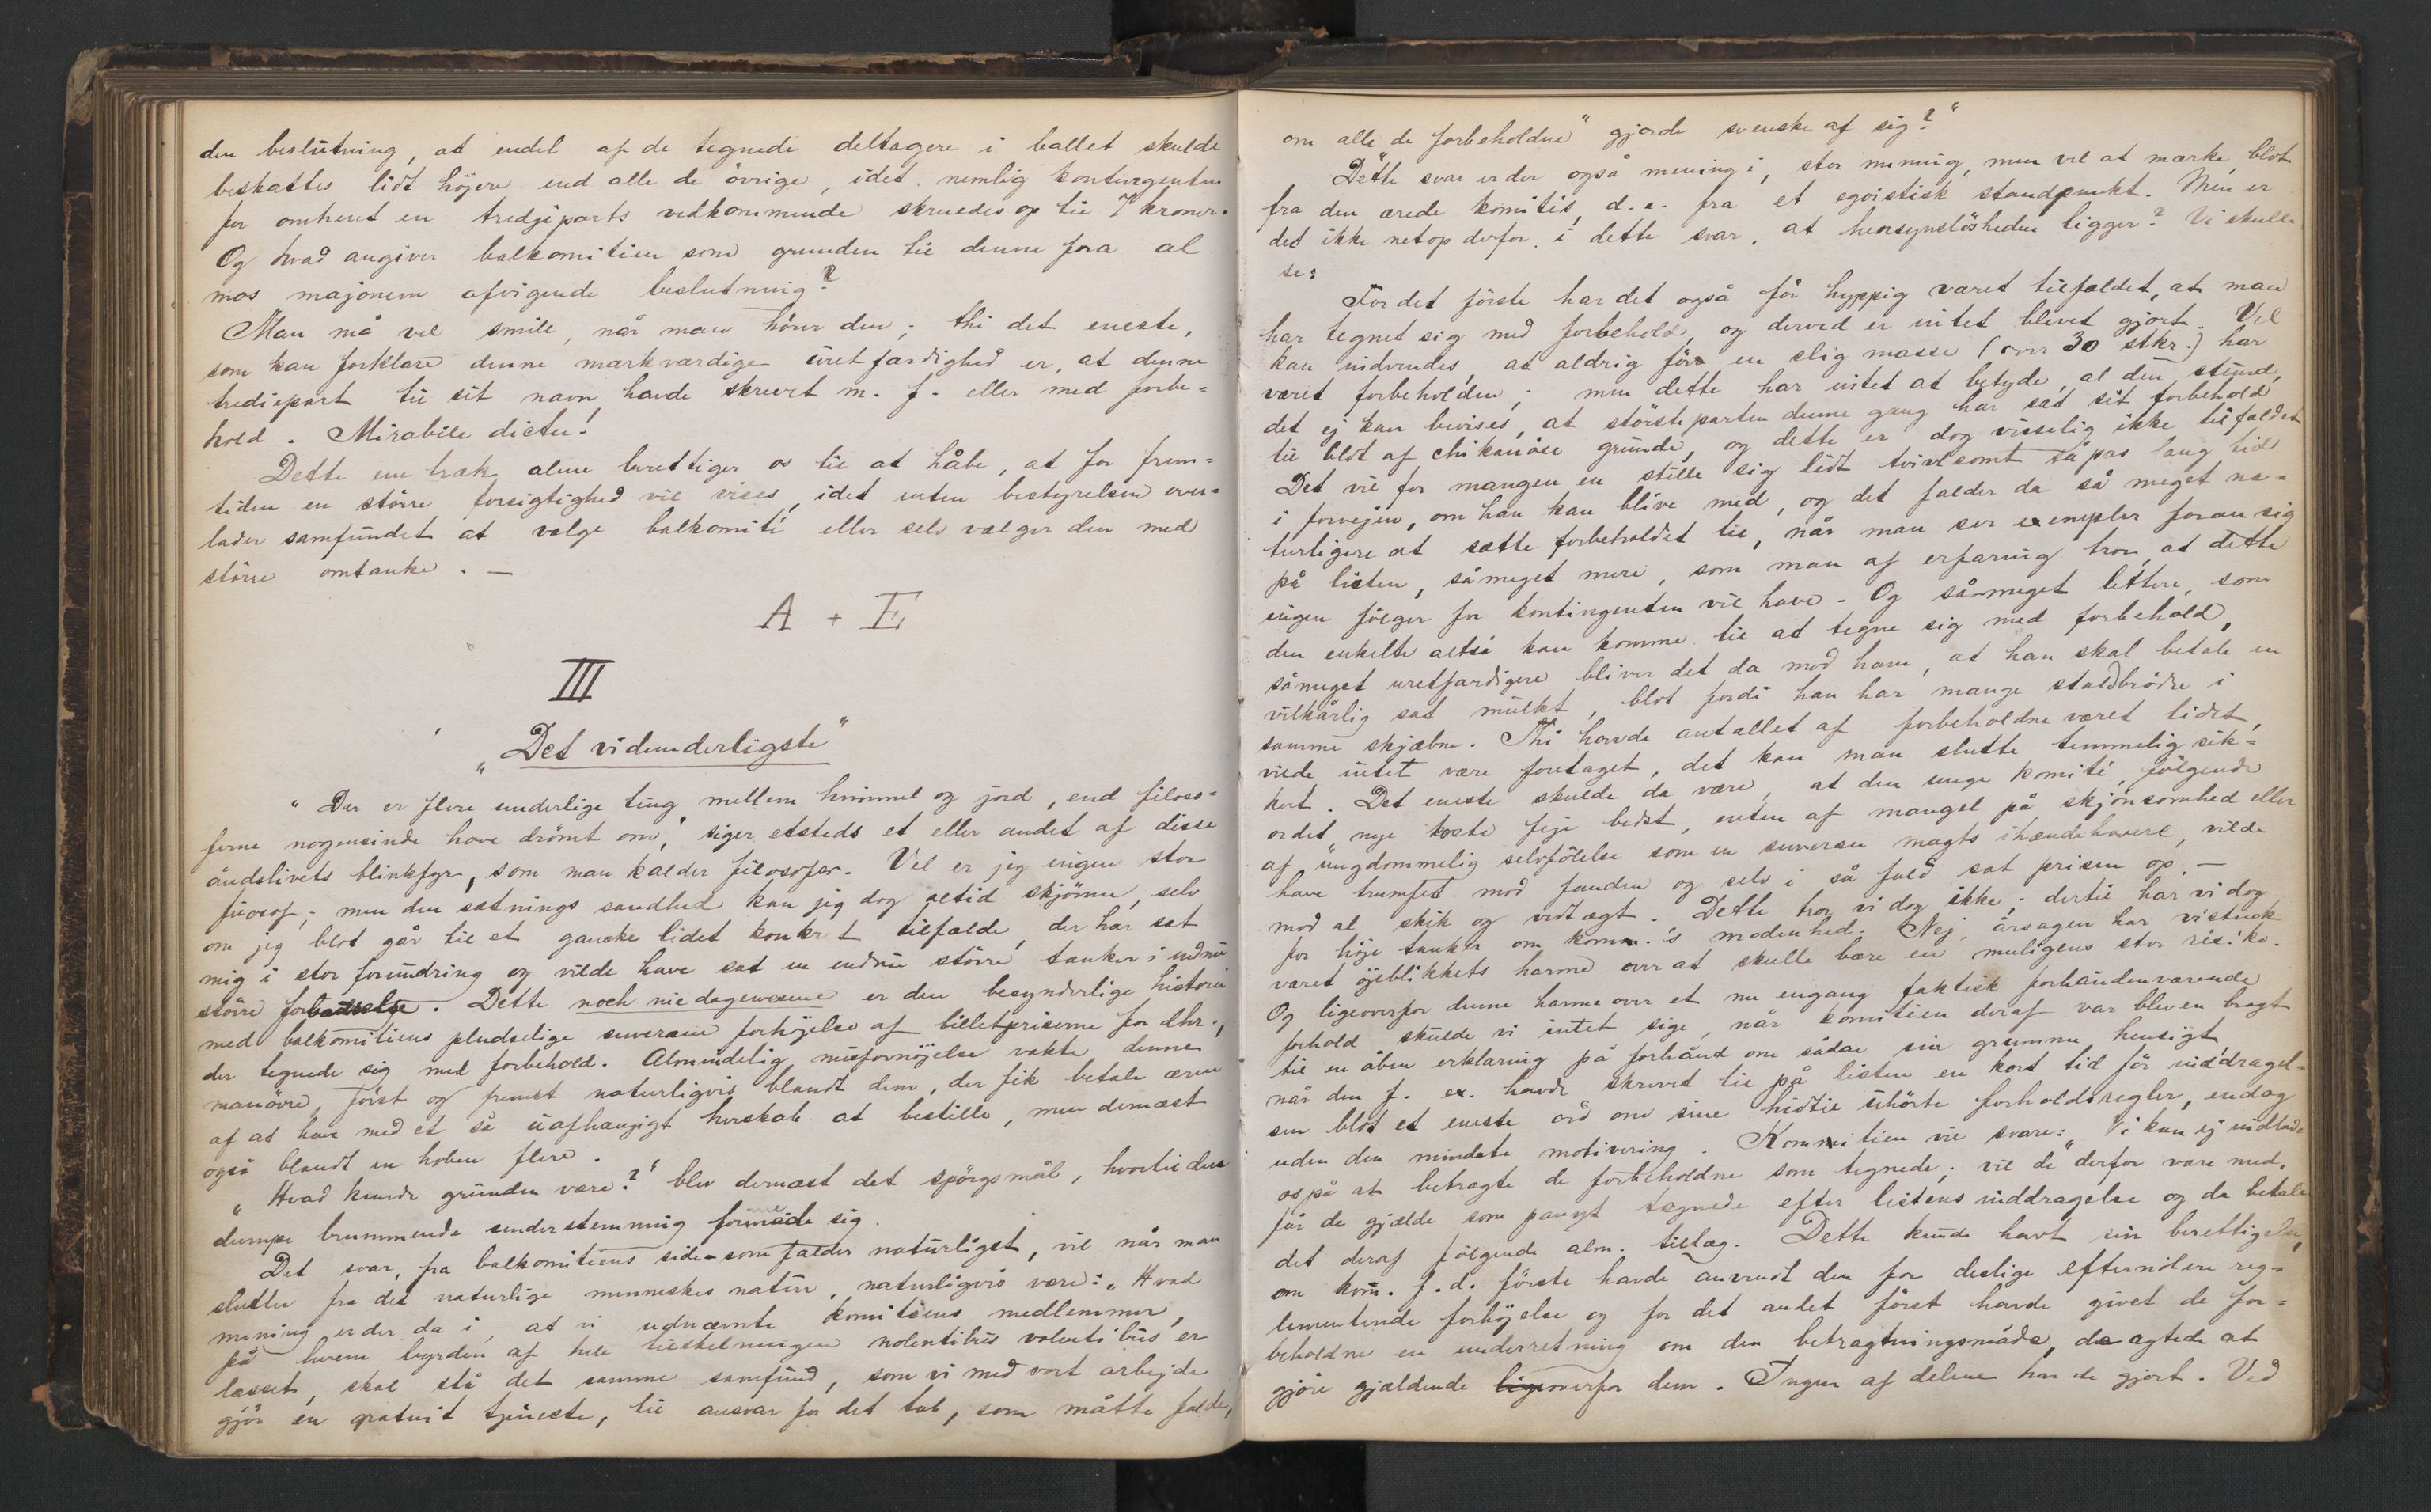 den beslutning, at endel af de tegnede deltagere i ballet skulde
beskattes lidt höjere end alle de övrige, idet nemlig kontingenten
for omhent en tredjeparts vedkommende skruedes op til 7 kroner.
Og hvad angiver balkomitéen som grunden til denne fra al
mos majorum afvigende beslutning?
Man må vel smile, når man hörer den; thi det eneste,
som kan forklare denne mærkværdige uretfærdighed er, at denne
trediepart til sit navn havde skrevet m. f. eller med forbe=
hold. Mirabile dictu!
Dette ene træk alene berettiger os til at håbe, at for frem=
tiden en större forsigtighed vil vises, idet enten bestyrelsen over=
lader samfundet at vælge balkomité eller selv vælger den med
större omtanke. —
A + E
III
„Det vidunderligste“
„Der er flere underlige ting mellem himmel og jord, end filoso=
ferne nogensinde have drömt om,“ siger etsteds et eller andet af disse
åndslivets blinkfyr, som man kalder filosofer. Vel er jeg ingen stor
filosof; men den sætnings sandhed kan jeg dog altid skjönne, selv
om jeg blot går til et ganske lidet konkret tilfælde, der har sat
mig i stor forundring og vilde have sat en endnu större tænker i endnu
större forbauselse. Dette noch nie dagewesene er den besynderlige historie
med balkomitéens pludselige suveræne forhöjelse af billetpriserne for dhr.,
der tegnede sig med forbehold. Almindelig misfornöjelse vakte denne
manövre, först og fremst naturligvis blandt dem, der fik betale æren
af at have med et så uafhængigt herskab at bestille, men dernæst
også blandt en hoben flere.
„Hvad kunde grunden være?“ blev dernæst det spörgsmål, hvortil den
dumpe brummende understemning formede sig.
Det svar, fra balkomitéens side som falder naturligst, vil når man
slutter fra det naturlige menneskes natur, naturligvis være: „Hvad
mening er der da i, at vi udnævnte komitéens medlemmer,
på hvem byrden af hele tilstelningen nolentibus volentibus er
læsset, skal stå det samme samfund, som vi med vort arbejde
gjör en gratuit tjeneste, til ansvar for det tab, som måtte falde,
om alle de „forbeholdne“ gjorde svenske af sig?“
Dette svar er der også mening i, stor mening, men vel at mærke, blot
fra den ærede komités, d. e. fra et egoistisk standpunkt. Men er
det ikke netop derfor, i dette svar, at hensynslösheden ligger? Vi skulle
se:
For det förste har det også för hyppig været tilfældet, at man
har tegnet sig med forbehold, og derved er intet blevet gjort. Vel
kan indvendes, at aldrig för en slig masse (over 30 stkr.) har
været forbeholden; men dette har intet at betyde, al den stund,
det ej kan bevises, at störsteparten denne gang har sat sit forbehold
til blot af chikanöse grunde, og dette er dog visselig ikke tilfældet
Det vil for mangen en stille sig lidt tvivlsomt såpas lang tid
i forvejen, om han kan blive med, og det falder da så meget na=
turligere at sætte forbeholdet til, når man ser exempler foran sig
på listen, såmeget mere, som man af erfaring tror, at dette
ingen fölger for kontingenten vil have. Og såmeget lettere, som
den enkelte altså kan komme til at tegne sig med forbehold,
såmeget uretfærdigere bliver det da mod ham, at han skal betale en
vilkårlig sat mulkt, blot fordi han har mange staldbrödre i
samme skjæbne. Thi havde antallet af forbeholdne været lidet,
vilde intet være foretaget, det kan man slutte temmelig sik=
kert. Det eneste skulde da være, at den unge komité, fölgende
ordet, nye koste feje bedst, enten af mangel på skjönsomhed eller
af ungdommelig selvfölelse som en suveræn magts ihændehavere, vilde
have trumfet mod fanden og selv i så fald sat prisen op, —
mod al skik og vedtægt. Dette tror vi dog ikke; dertil har vi dog
for höje tanker om kom.'s modenhed. Nej, årsagen har vistnok
været öjeblikkets harme over at skulle bære en muligens stor risiko.
Og ligeoverfor denne harme over et nu engang faktisk forhåndenværende
forhold skulde vi intet sige, når komitéen deraf var bleven bragt
til en åben erklæring på forhånd om sådan sin grumme hensigt,
når den f. ex. havde skrevet til på listen en kort tid för inddragel=
sen blot et eneste ord om sine hidtil uhörte forholdsregler, endog
uden den mindste motivering. Komitéen vil svare: „Vi kan ej indlade
os på at betragte de forbeholdne som tegnede; vil de derfor være med,
får de gjælde som pånyt tegnede efter listens inddragelse og da betale
det deraf fölgende alm. tillæg. Dette kunde havt sin berettigelse,
om kom. f. d. förste havde anvendt den for deslige efternölere reg=
lementerede forhöjelse og for det andet först havde givet de for=
beholdne en underretning om den betragtningsmåde, de agtede at
gjöre gjældende ligeoverfor dem. Ingen af delene har de gjort. Ved